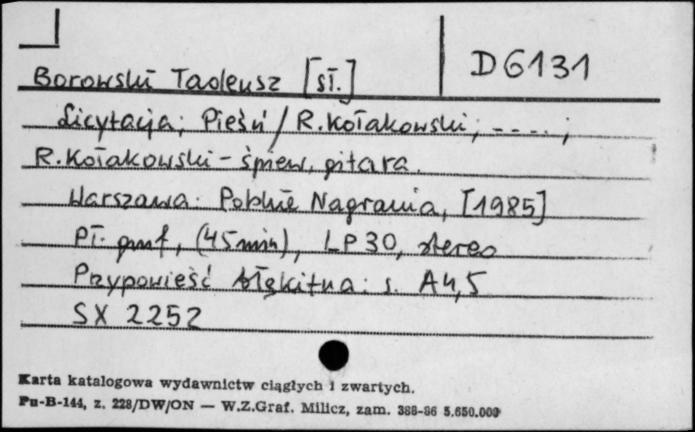 D6131
Borowski Tadeusz [sł.]
Licytacja; Pieśń / R. Kołakowski, - - - - ;
R. Kołakowski - śpiew, gitara.
Warszawa: Polskie Nagrania, [1985]
Pł. gmf, (45 min), LP 30, stereo
Przypowieść błękitna: s. A4,5
SX 2252
Karta katalogowa wydawnictw ciągłych i zwartych.
Pu-B-144, z. 228/DW/ON — W.Z.Graf. Milicz, zam. 388-86 5.650.000